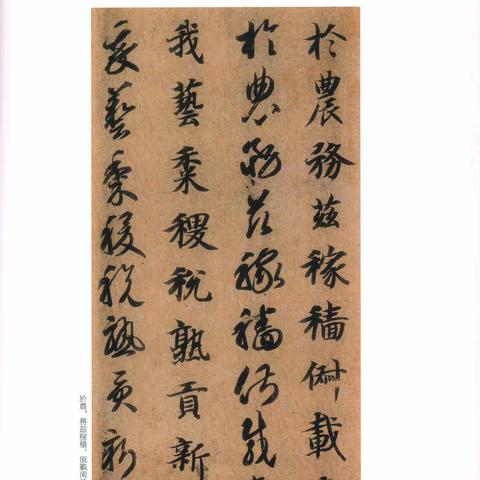 於農務茲稼穡俶載
於農務茲稼穡俶載
我藝黍稷稅熟貢新
我藝黍稷稅熟貢新
於農，務茲稼穡。俶載南